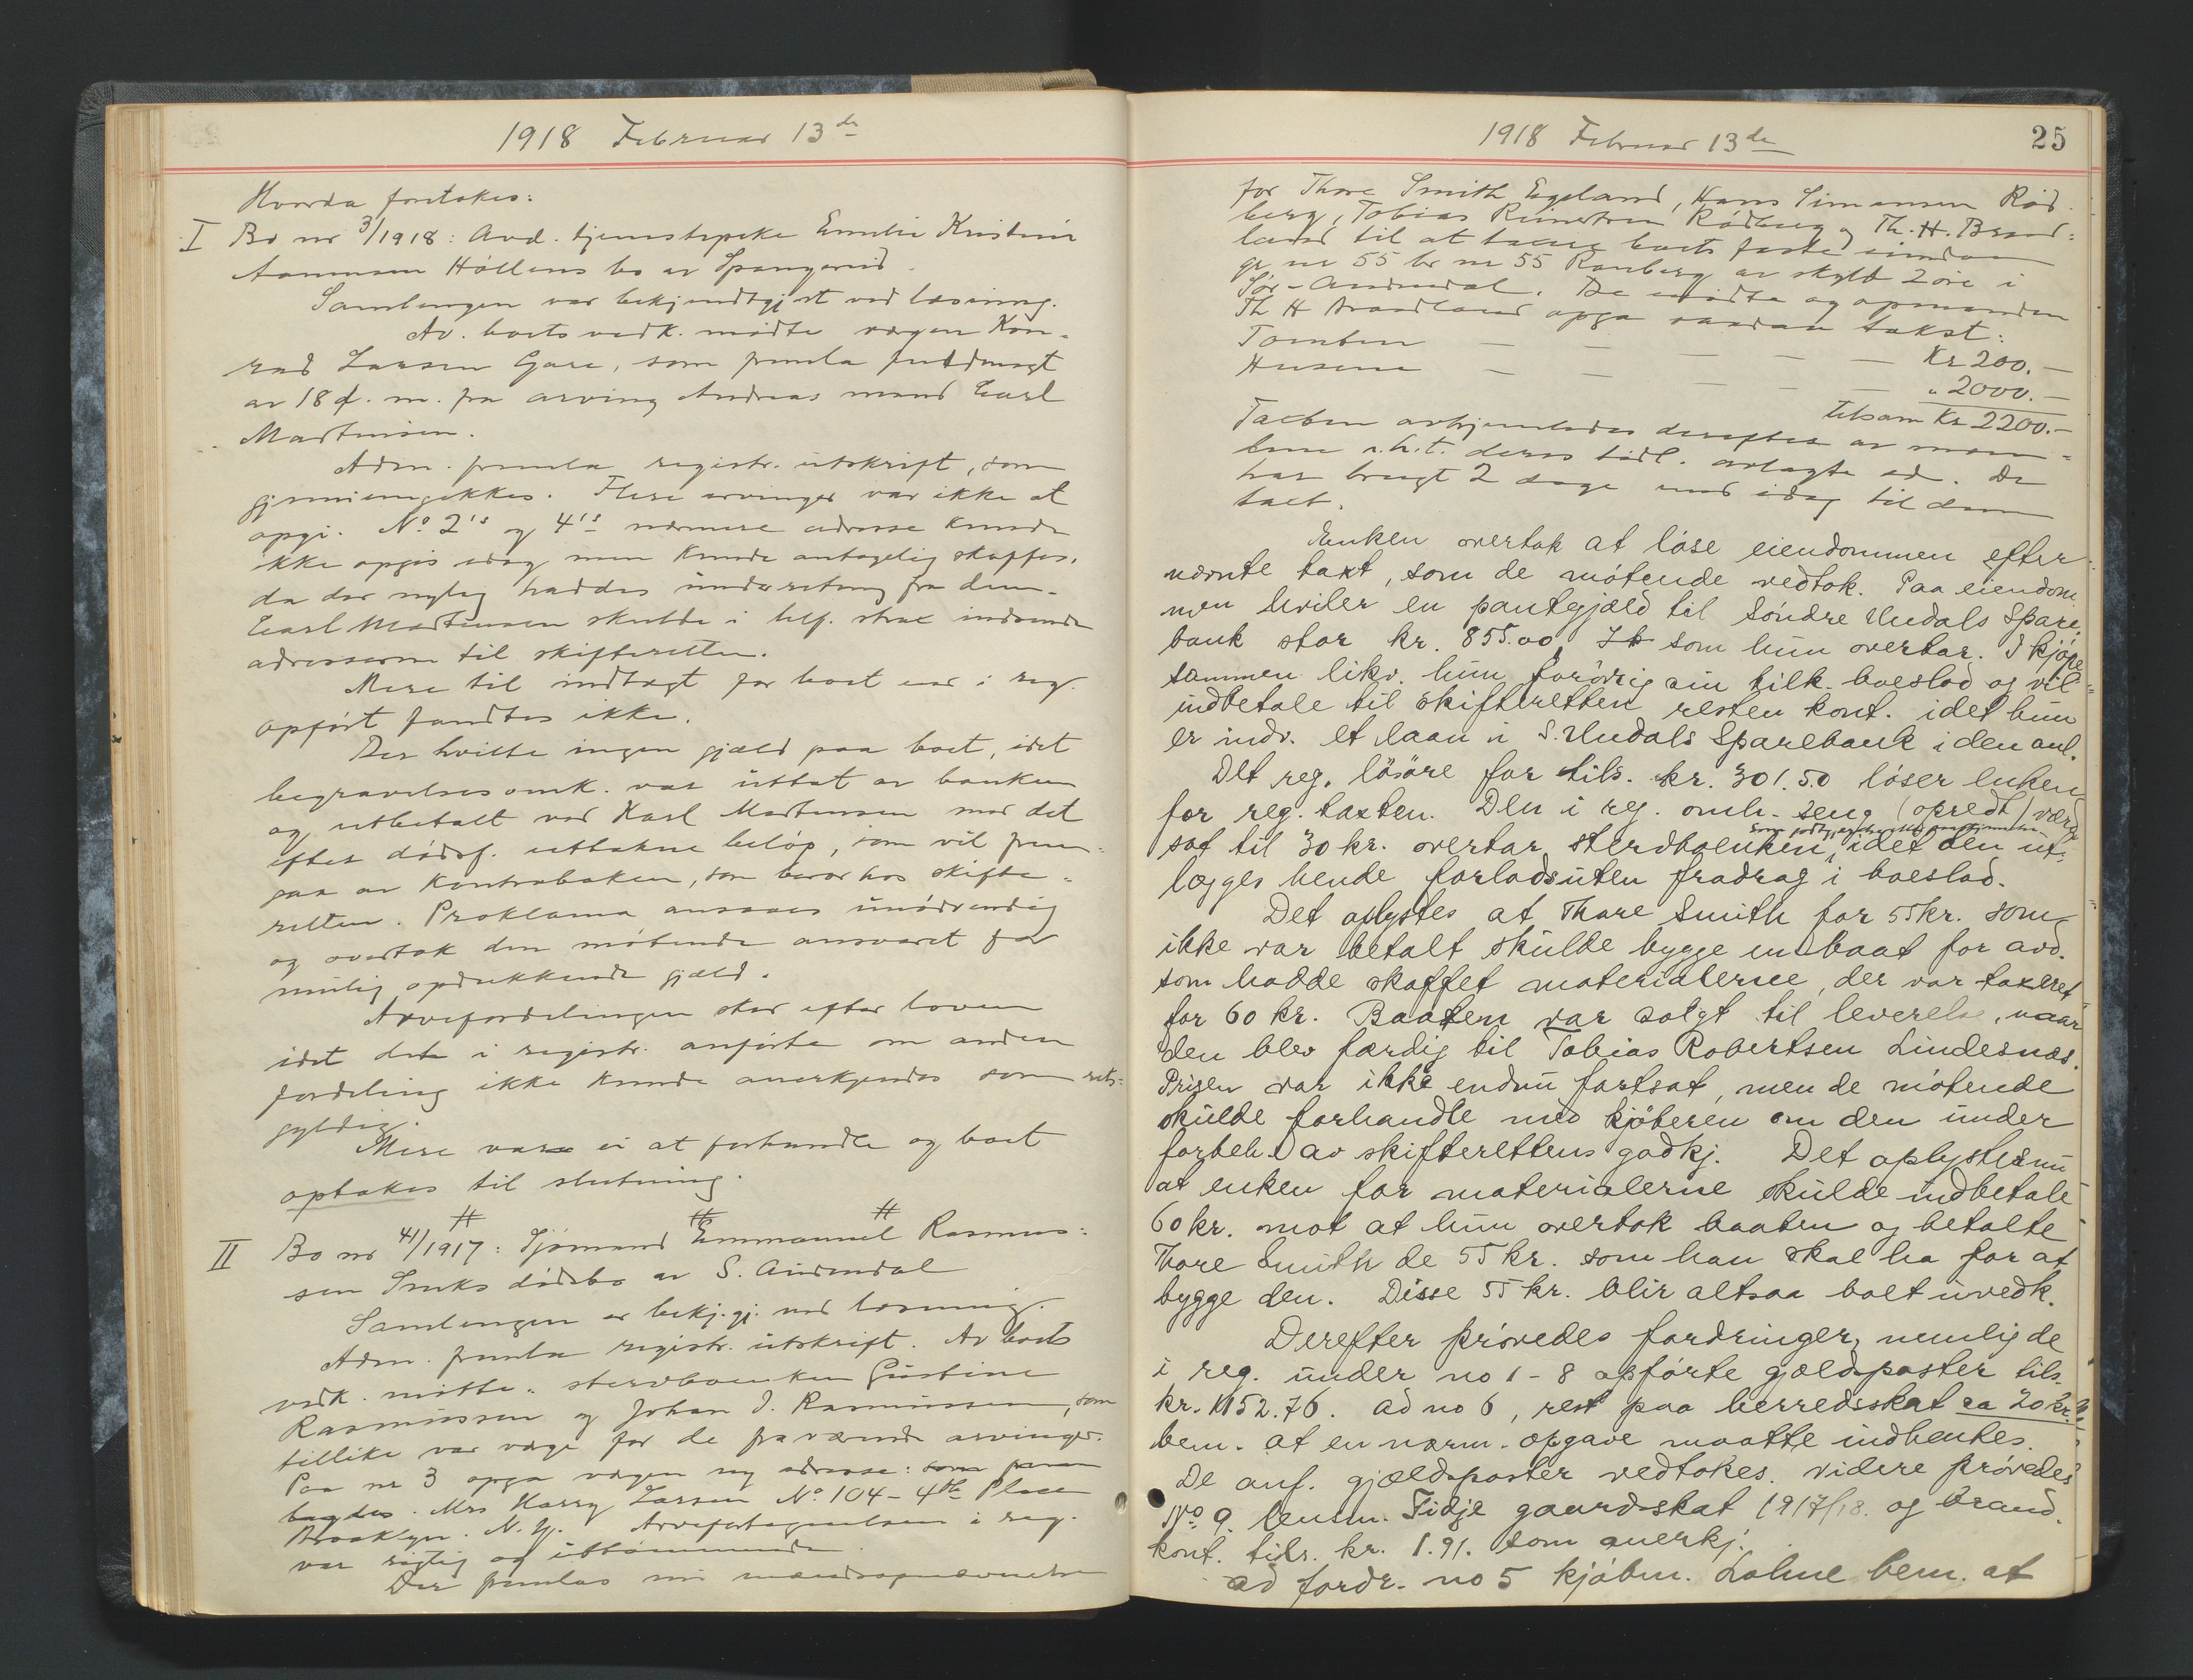 1918 Februar 13de
Hvorda foretokes:
I Bo nr 3/1918: Avd. tjenestepike Emilie Kristine
Aanensen Höllens bo av Spangereid.
Samlingen var bekjendtgjort ved læsning.
Av boets vedk. mødte vergen Kon-
rad Larsen Gare, som fremla fuldmagt
av 18 d. m. fra arving Andreas mand Carl
Martinsen.
Adm. fremla registr. utskrift, som
gjennemgikkes. Flere arvinger var ikke at
opgi. No 2's og 4's nærmere adresse kunde
ikke opgis idag men kunde antagelig skaffes,
da der nylig haddes underretning fra dem.
Carl Martinsen skulde i tilf. strax indsende
adresserne til skifteretten.
Mere til indtægt for boet end i reg.
opført fandtes ikke.
Der hvilte ingen gjæld paa boet, idet
begravelsesomk. var uttat av banken
og utbetalt ved Karl Martinsen med det
efter dødsf. uttakne beløp, som vil frem-
gaa av kontraboken, som beror hos skifte-
retten. Proklama ansaaes unødvendig
og overtok den møtende ansvaret for
mulig opdukkende gjæld.
Arvefordelingen sker efter loven
idet det i registr. anførte om anden
fordeling ikke kunde anerkjendes som rets-
gyldig.
Mere var ei at forhandle og boet
optakes til slutning.
# # #
II Bo nr 41/1917: Sjømand Emmanuel Rasmus-
sen Snuks dødsbo av S. Audnedal
Samlingen er bekj.gj. ved læsning.
Adm. fremla registr. utskrift. Av boets
vedk. møtte: stervboenken Gustine
Rasmussen og Johan I. Rasmussen, som
tillike var verge for de fraværende arvinger.
Paa nr 3 opga vergen ny adresse:
Mrs Harry Larsen No 104 - 4th Place
Brooklyn. N. Y. Arvefortegnelsen i reg.
var rigtig og uttømmende.
Der fremlas nu mændsopnævnelse
1918 Februar 13de
25
for Thore Smith Egeland, Hans Simonsen Röd-
berg, Tobias Reinertsen Rödberg og Th. H. Braad-
land til at taxere boets faste eiendom
gr nr 55 br nr 55 Ranberg av skyld 2 øre i
Sör-Audnedal. De mødte og opmanden
Th H Braadland opga saadan takst:
Tomten Kr 200.-
Husene " 2000.-
tilsam Kr 2200.-
Taxten avhjemledes derefter av mæn-
dene i h. t. deres tidl. avlagte ed. De
har brugt 2 dage med idag til dem
taxt.
Enken overtok at löse eiendommen efter
nævnte taxt, som de mötende vedtok. Paa eiendom-
men hviler en pantegjæld til Söndre Undals Spare-
bank stor kr. 855.00, som hun overtar. I kjöpe-
sammen likv. hun forövrig sin tilk. boeslod og vil
indbetale til skifteretten resten kont. idet hun
er indv. et laan i S. Undals Sparebank i den anl.
Det reg. lösöre for tils. kr. 301.50 löser enken
for reg. taxten. Den i reg. omh. seng (opredt) værd-
sat til 30 kr. overtar sterdboenken, idet den ut-
lægges hende forlods uten fradrag i boeslod.
Det oplystes at Thore Smith for 55 kr. som
ikke var betalt skulde bygge en baat for avd.
som hadde skaffet materialerne, der var taxeret
for 60 kr. Baaten var solgt til leverelse, naar
den blev færdig til Tobias Robertsen Lindesnæs.
Prisen var ikke endnu fastsat, men de mötende
skulde forhandle med kjöberen om den under
forbeh. av skifterettens godkj. Det oplystes nu
at enken for materialerne skulde indbetale
60 kr. mot at hun overtok baaten og betalte
Thore Smith de 55 kr. som han skal ha for at
bygge den. Disse 55 kr. blir altsaa boet uvedk.
Derefter prövedes fordringer, nemlig de
i reg. under no 1 - 8 opförte gjeldsposter tils.
kr. 1152.76. Ad no 6, rest paa herredsskat ca 20 kr.
bem. at en nærm. opgave maatte indhentes.
De anf. gjældsposter vedtokes. Videre prövedes
No 9. lensm. Fidje gaardsskat 1917/18. og brand.
kont. tils. kr. 1.91. som anerkj.
ad fordr. no 5 kjöbm. Lohne bem. at